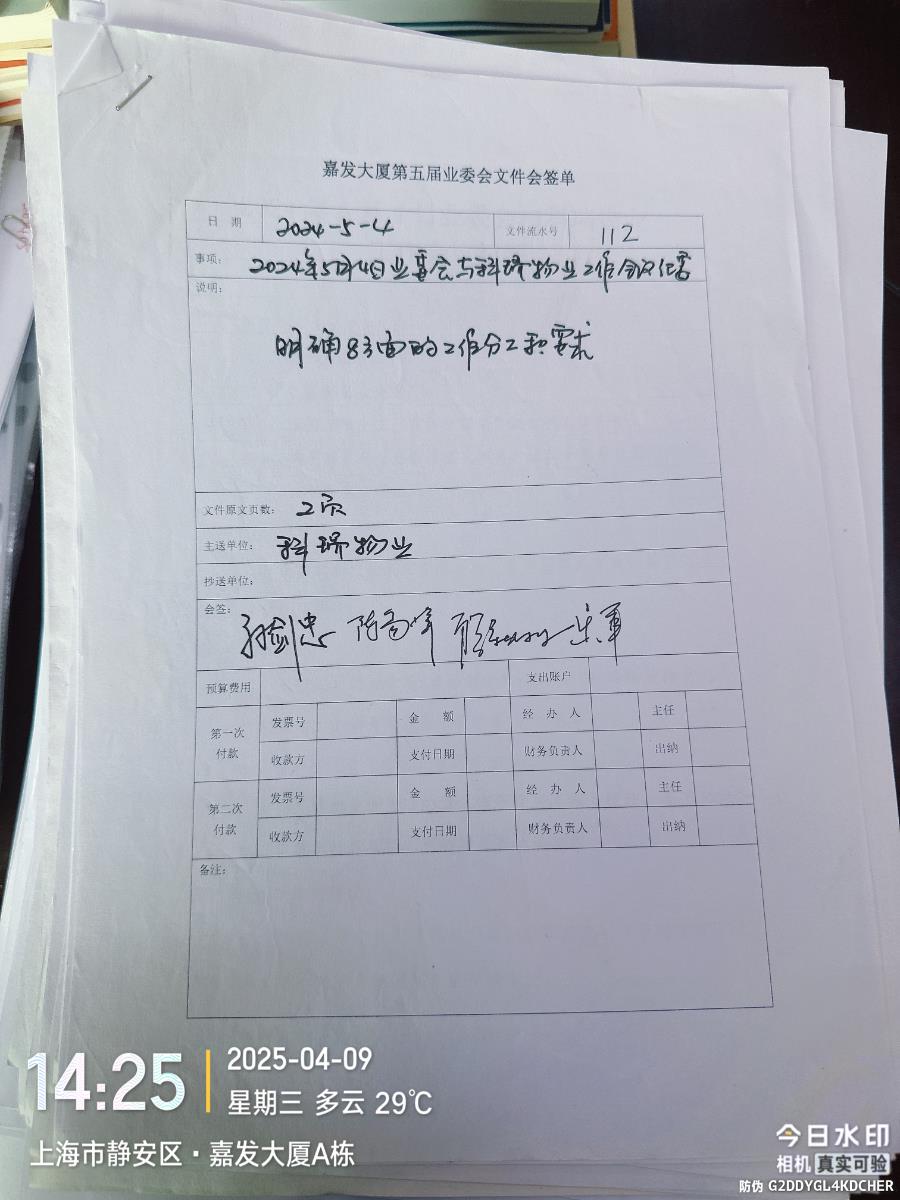 嘉发大厦第五届业委会文件会签单
日 期 2024-5-4 文件流水号 112
事项: 2024年5月4日业委会与科瑞物业工作会议纪要
说明:
明确8方面的工作分工和要求
文件原文页数: 2页
主送单位: 科瑞物业
抄送单位:
会签:
预算费用 支出账户
第一次付款 发票号 金 额 经 办 人 主任
收款方 支付日期 财务负责人 出纳
第二次付款 发票号 金 额 经 办 人 主任
收款方 支付日期 财务负责人 出纳
备注:
14:25 2025-04-09
星期三 多云 29℃
上海市静安区·嘉发大厦A栋
今日水印
相机 真实可验
防伪 G2DDYGL4KDCHER